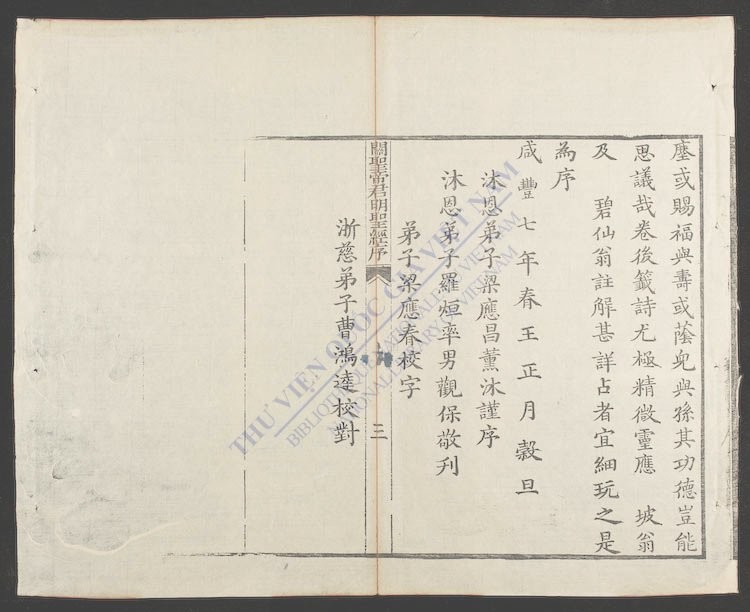 塵或賜福與壽或蔭兒與孫其功德豈能
思議哉卷後籤詩尤極精微靈應　坡翁
及　碧仙翁註解甚詳占者宜細玩之是
為序
咸豐七年春王正月穀旦
沐恩弟子梁應昌薰沐謹序
沐恩弟子羅烜率男觀保敬刋
弟子梁應春校字
關聖帝君明聖經序
三
浙慈弟子曹鴻逵校對
THƯ VIỆN QUỐC GIA VIỆT NAM
BIBLIOTHÈQUE NATIONALE DU VIETNAM
NATIONAL LIBRARY OF VIETNAM